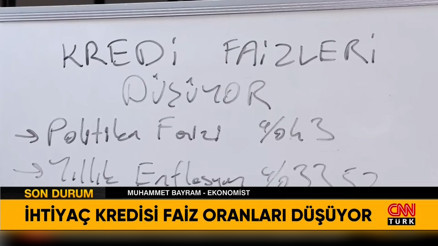 KREDİ FAİZLERİ
DÜŞÜYOR
→ Politika Faizi %43
→ Yıllık Enflasyon %33,52
SON DURUM
MUHAMMET BAYRAM - EKONOMİST
İHTİYAÇ KREDİSİ FAİZ ORANLARI DÜŞÜYOR
CNN
TÜRK